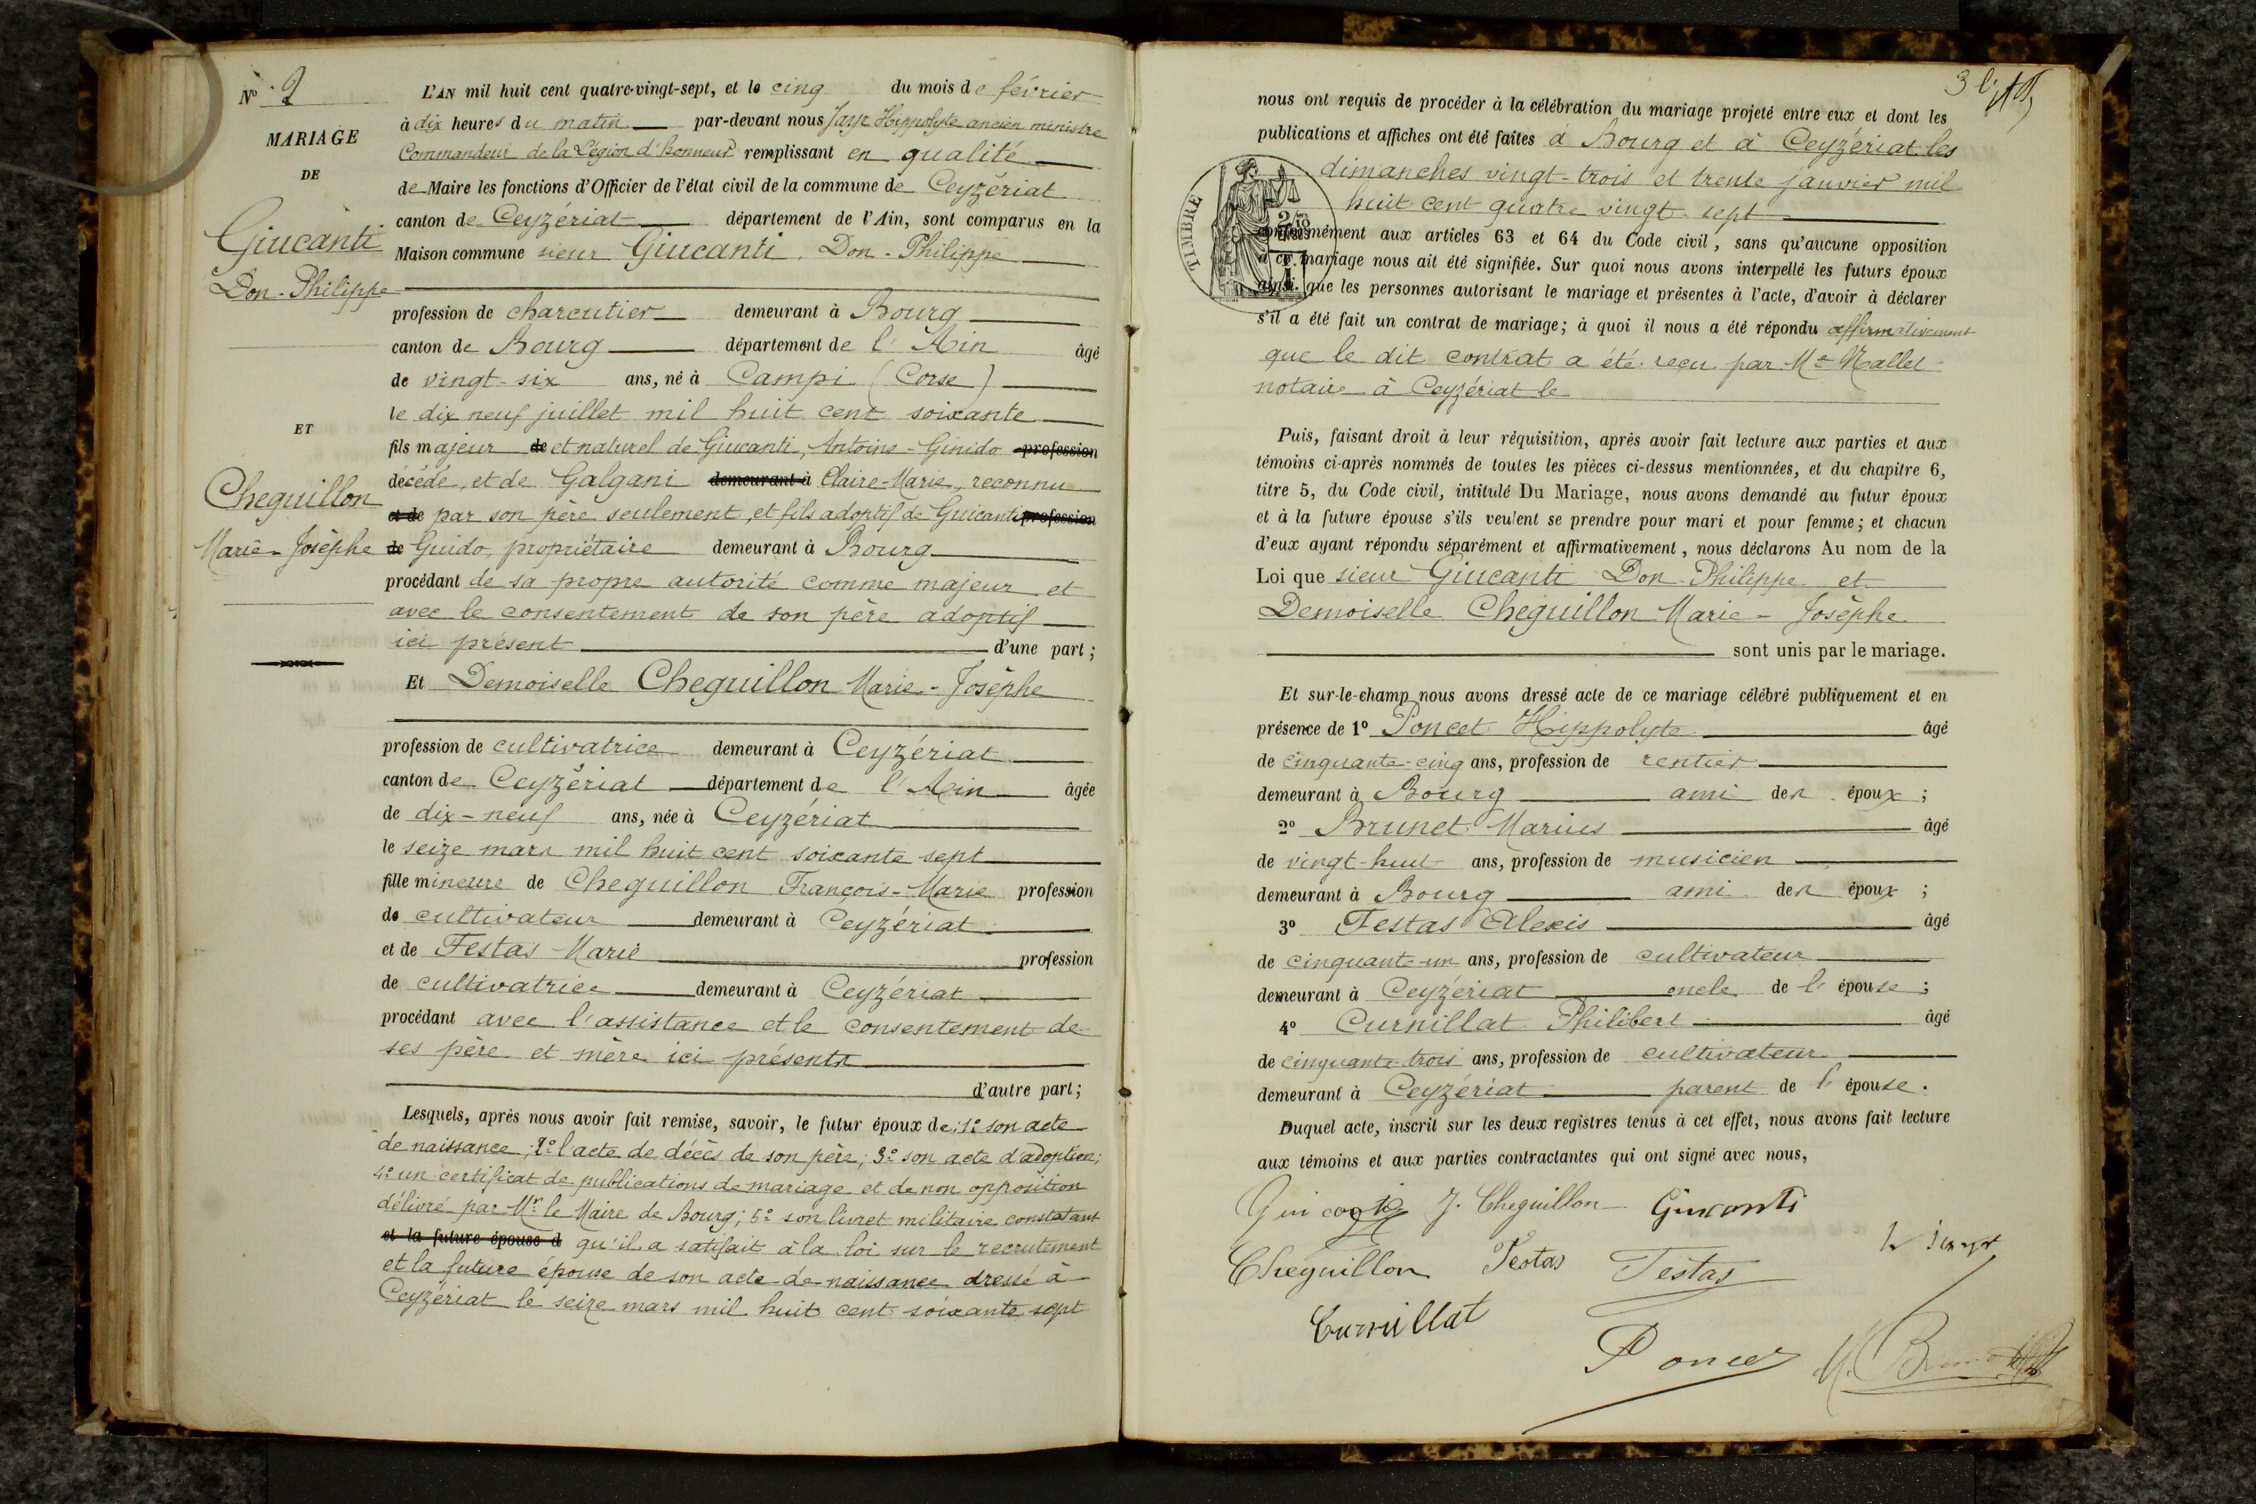 N° 2
MARIAGE
DE
Giucanti
Don-Philippe
ET
Cheguillon
Marie-Josèphe
L'AN mil huit cent quatre-vingt-sept, et le cinq du mois de février
à dix heures du matin par-devant nous Jayr Hippolyte ancien ministre
Commandeur de la Légion d'honneur remplissant en qualité
de Maire les fonctions d'Officier de l'état civil de la commune de Ceyzériat
canton de Ceyzériat département de l'Ain, sont comparus en la
Maison commune sieur Giucanti, Don-Philippe
profession de charcutier demeurant à Bourg
canton de Bourg département de l'Ain âgé
de vingt-six ans, né à Campi (Corse)
le dix neuf juillet mil huit cent soixante
fils majeur de et naturel de Giucanti, Antoine-Ginido profession
décédé, et de Galgani demeurant à Claire-Marie, reconnu
et de par son père seulement, et fils adoptif de Guicanti profession
de Guido, propriétaire demeurant à Bourg
procédant de sa propre autorité comme majeur et
avec le consentement de son père adoptif
ici présent d'une part;
Et Demoiselle Cheguillon Marie-Josèphe
profession de cultivatrice demeurant à Ceyzériat
canton de Ceyzériat département de l'Ain âgée
de dix-neuf ans, née à Ceyzériat
le seize mars mil huit cent soixante sept
fille mineure de Cheguillon François-Marie profession
de cultivateur demeurant à Ceyzériat
et de Festas Marie profession
de cultivatrice demeurant à Ceyzériat
procédant avec l'assistance et le consentement de
ses père et mère ici présents
d'autre part;
Lesquels, après nous avoir fait remise, savoir, le futur époux de: 1° son acte
de naissance; 2° l'acte de décès de son père; 3° son acte d'adoption;
4° un certificat de publications de mariage et de non opposition
délivré par Mr le Maire de Bourg; 5° son livret militaire constatant
et la future épouse d qu'il a satisfait à la loi sur le recrutement
et la future épouse de son acte de naissance dressé à
Ceyzériat le seize mars mil huit cent soixante sept
3
nous ont requis de procéder à la célébration du mariage projeté entre eux et dont les
publications et affiches ont été faites à Bourg et à Ceyzériat les
dimanches vingt-trois et trente janvier mil
huit cent quatre vingt sept
TIMBRE
conformément aux articles 63 et 64 du Code civil, sans qu'aucune opposition
à ce mariage nous ait été signifiée. Sur quoi nous avons interpellé les futurs époux
ainsi que les personnes autorisant le mariage et présentes à l'acte, d'avoir à déclarer
s'il a été fait un contrat de mariage; à quoi il nous a été répondu affirmativement
que le dit contrat a été reçu par Me Mallet
notaire à Ceyzériat le
Puis, faisant droit à leur réquisition, après avoir fait lecture aux parties et aux
témoins ci-après nommés de toutes les pièces ci-dessus mentionnées, et du chapitre 6,
titre 5, du Code civil, intitulé Du Mariage, nous avons demandé au futur époux
et à la future épouse s'ils veulent se prendre pour mari et pour femme; et chacun
d'eux ayant répondu séparément et affirmativement, nous déclarons Au nom de la
Loi que sieur Giucanti Don-Philippe et
Demoiselle Cheguillon Marie-Josèphe
sont unis par le mariage.
Et sur-le-champ nous avons dressé acte de ce mariage célébré publiquement et en
présence de 1° Poncet Hippolyte âgé
de cinquante-cinq ans, profession de rentier
demeurant à Bourg ami des époux;
2° Brunet Marius âgé
de vingt-huit ans, profession de musicien
demeurant à Bourg ami des époux;
3° Festas Alexis âgé
de cinquante-un ans, profession de cultivateur
demeurant à Ceyzériat oncle de l'épouse;
4° Curnillat Philibert âgé
de cinquante-trois ans, profession de cultivateur
demeurant à Ceyzériat parent de l'épouse.
Duquel acte, inscrit sur les deux registres tenus à cet effet, nous avons fait lecture
aux témoins et aux parties contractantes qui ont signé avec nous,
J. Cheguillon Giucanti
Cheguillon Festas Festas
Curnillat
Poncet M. Brunet